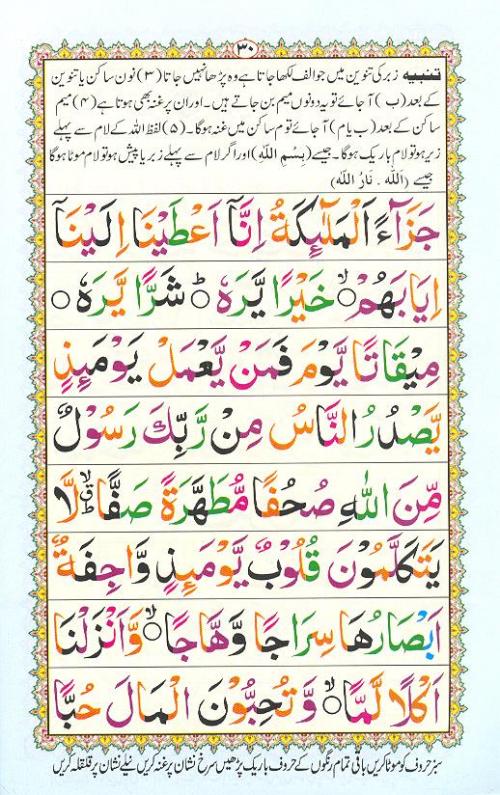 ۳۰
تنبیہ زبر کی تنوین میں جو الف لکھا جاتا ہے وہ پڑھا نہیں جاتا (۳) نون ساکن یا تنوین
کے بعد (ب) آ جائے تو یہ دونوں میم بن جاتے ہیں۔ اور ان پر غنہ بھی ہوتا ہے (۴) میم
ساکن کے بعد (ب یا م) آ جائے تو م ساکن میں غنہ ہوگا۔ (۵) لفظ اللہ کے لام سے پہلے
زیر ہو تو لام باریک ہوگا۔ جیسے (بِسْمِ اللّٰهِ) اور اگر لام سے پہلے زبر یا پیش ہو تو لام موٹا ہوگا
جیسے (اَللّٰهُ . نَارُ اللّٰهِ)
جَزَآءً اَلْمَلٰٓئِكَةُ اِنَّآ اَعْطَيْنَا اِلَيْنَآ
اِيَابَهُمْ ۙ خَيْرًا يَّرَهٗ ۟ؕ شَرًّا يَّرَهٗ ۟
مِيْقَاتًا يَّوْمَ فَمَنْ يَّعْمَلْ يَوْمَئِذٍ
يَّصْدُرُ النَّاسُ مِنْ رَّبِّكَ رَسُوْلٌ
مِّنَ اللّٰهِ صُحُفًا مُّطَهَّرَةً صَفًّا ۙۗؕ لَّا
يَتَكَلَّمُوْنَ قُلُوْبٌ يَّوْمَئِذٍ وَّاجِفَةٌ
اَبْصَارُهَا سِرَاجًا وَّهَّاجًا ۙ وَّاَنْزَلْنَا
اَكْلًا لَّمًّا ۙ وَّتُحِبُّوْنَ الْمَالَ حُبًّا
سبز حروف کو موٹا کریں باقی تمام رنگوں کے حروف باریک پڑھیں سرخ نشان پر غنہ کریں نیلے نشان پر قلقلہ کریں